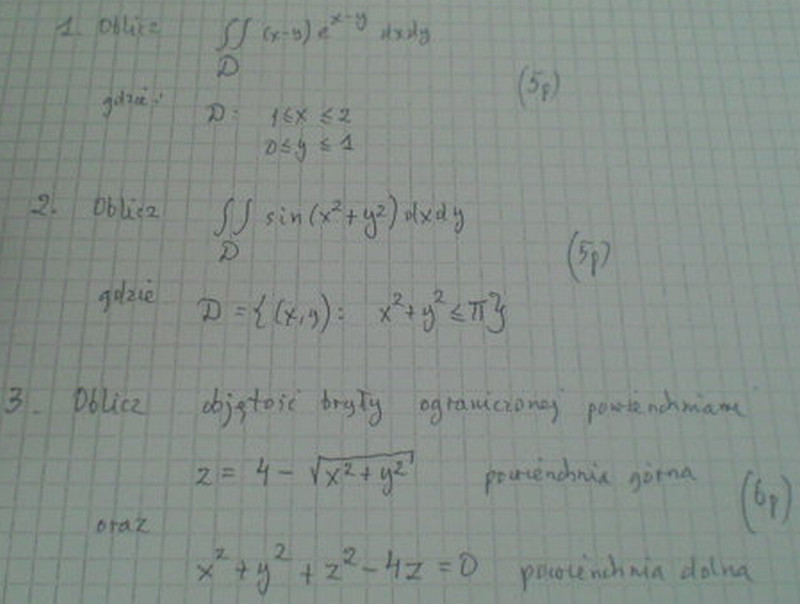 1. Oblicz ∬ (x-y) e^{x-y} dxdy
D
(5p)
gdzie: D: 1≤x ≤2
0≤y ≤ 1
2. Oblicz ∬ sin(x²+y²) dxdy
D
(5p)
gdzie D = {(x,y): x²+y² ≤ π}
3. Oblicz objętość bryły ograniczonej powierzchniami
z = 4 - √(x²+y²) powierzchnia górna
(6p)
oraz
x² + y² + z² - 4z = 0 powierzchnia dolna